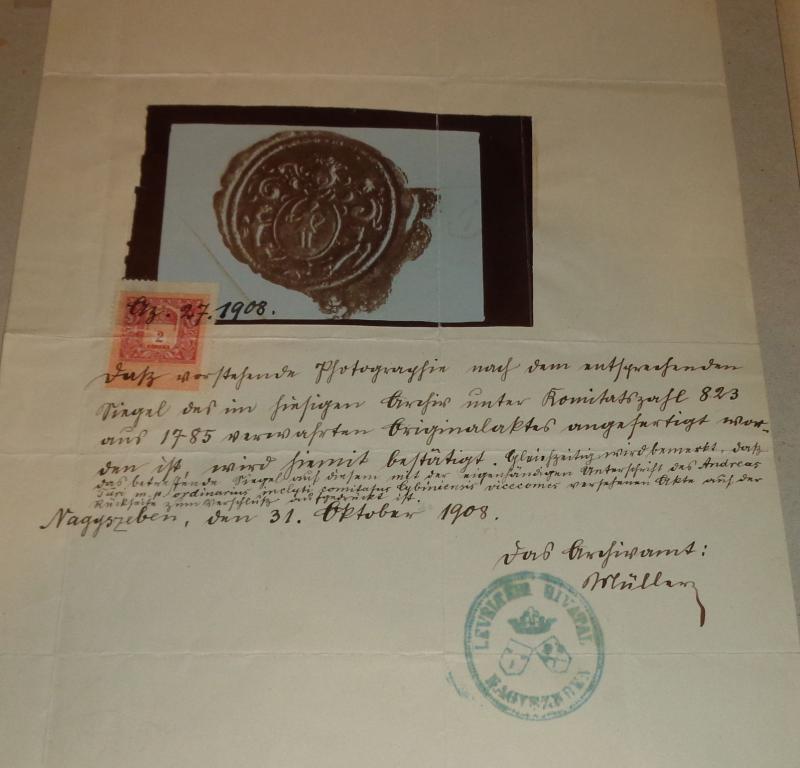 Az. 27.1908.
2
Daß vorstehende Photographie nach dem entsprechenden
Siegel des im hiesigen Archiv unter Komitatszahl 823
aus 1785 verwahrten Originalaktes angefertigt wor-
den ist, wird hiemit bestätigt. Gleichzeitig wird bemerkt, daß
das betreffende Siegel auf diesem mit der eigenhändigen Unterschrift des Andreas
m.p. ordinarius inclyti comitatus Cybiniensis vicecomes versehenen Akte auf der
Rückseite zum Verschluß aufgedrückt ist.
Nagyszeben, den 31. Oktober 1908.
Das Archivamt:
Müller
LEVÉLTÁRI HIVATAL
NAGYSZEBEN